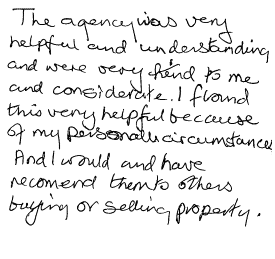 The agency was very
helpful and understanding
and were very kind to me
and considerate. I found
this very helpful because
of my personal circumstances
And I would and have
recomend them to others
buying or selling property.